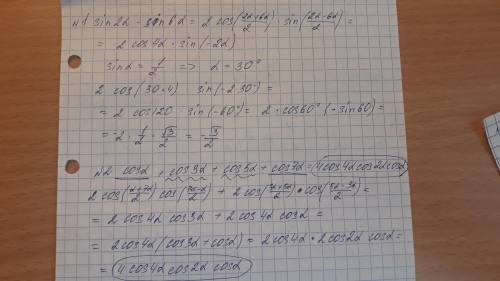 №1 sin2α - sin6α = 2 cos(2α+6α/2) · sin(2α-6α/2) =
= 2 cos4α · sin(-2α)
sinα = 1/2 => α = 30°
2 cos(30·4) · sin(-2·30°) =
= 2 cos120 · sin(-60°) = 2 · cos60° (-sin60) =
= -2 · 1/2 · √3/2 = √3/2
№2 cosα + cos3α + cos5α + cos7α = 4cos4αcos2αcosα
2 cos(α+7α/2) cos(7α-α/2) + 2 cos(3α+5α/2) · cos(5α-3α/2) =
= 2 cos4α cos3α + 2 cos4α cosα =
= 2cos4α (cos3α + cosα) = 2cos4α · 2cos2α cosα =
= 4 cos4α cos2α cosα